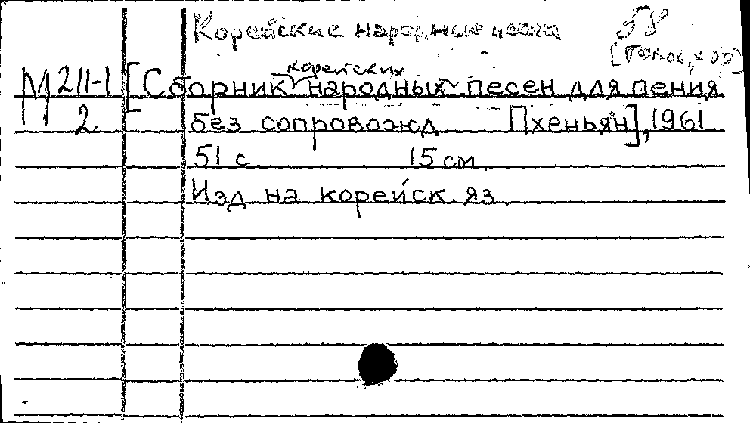 Корейские народные песни 58
[голос, хор]
М 211-1 [Сборник корейских народных песен для пения
2. без сопровожд Пхеньян], 1961
51 с 15 см.
Изд на корейск. яз.